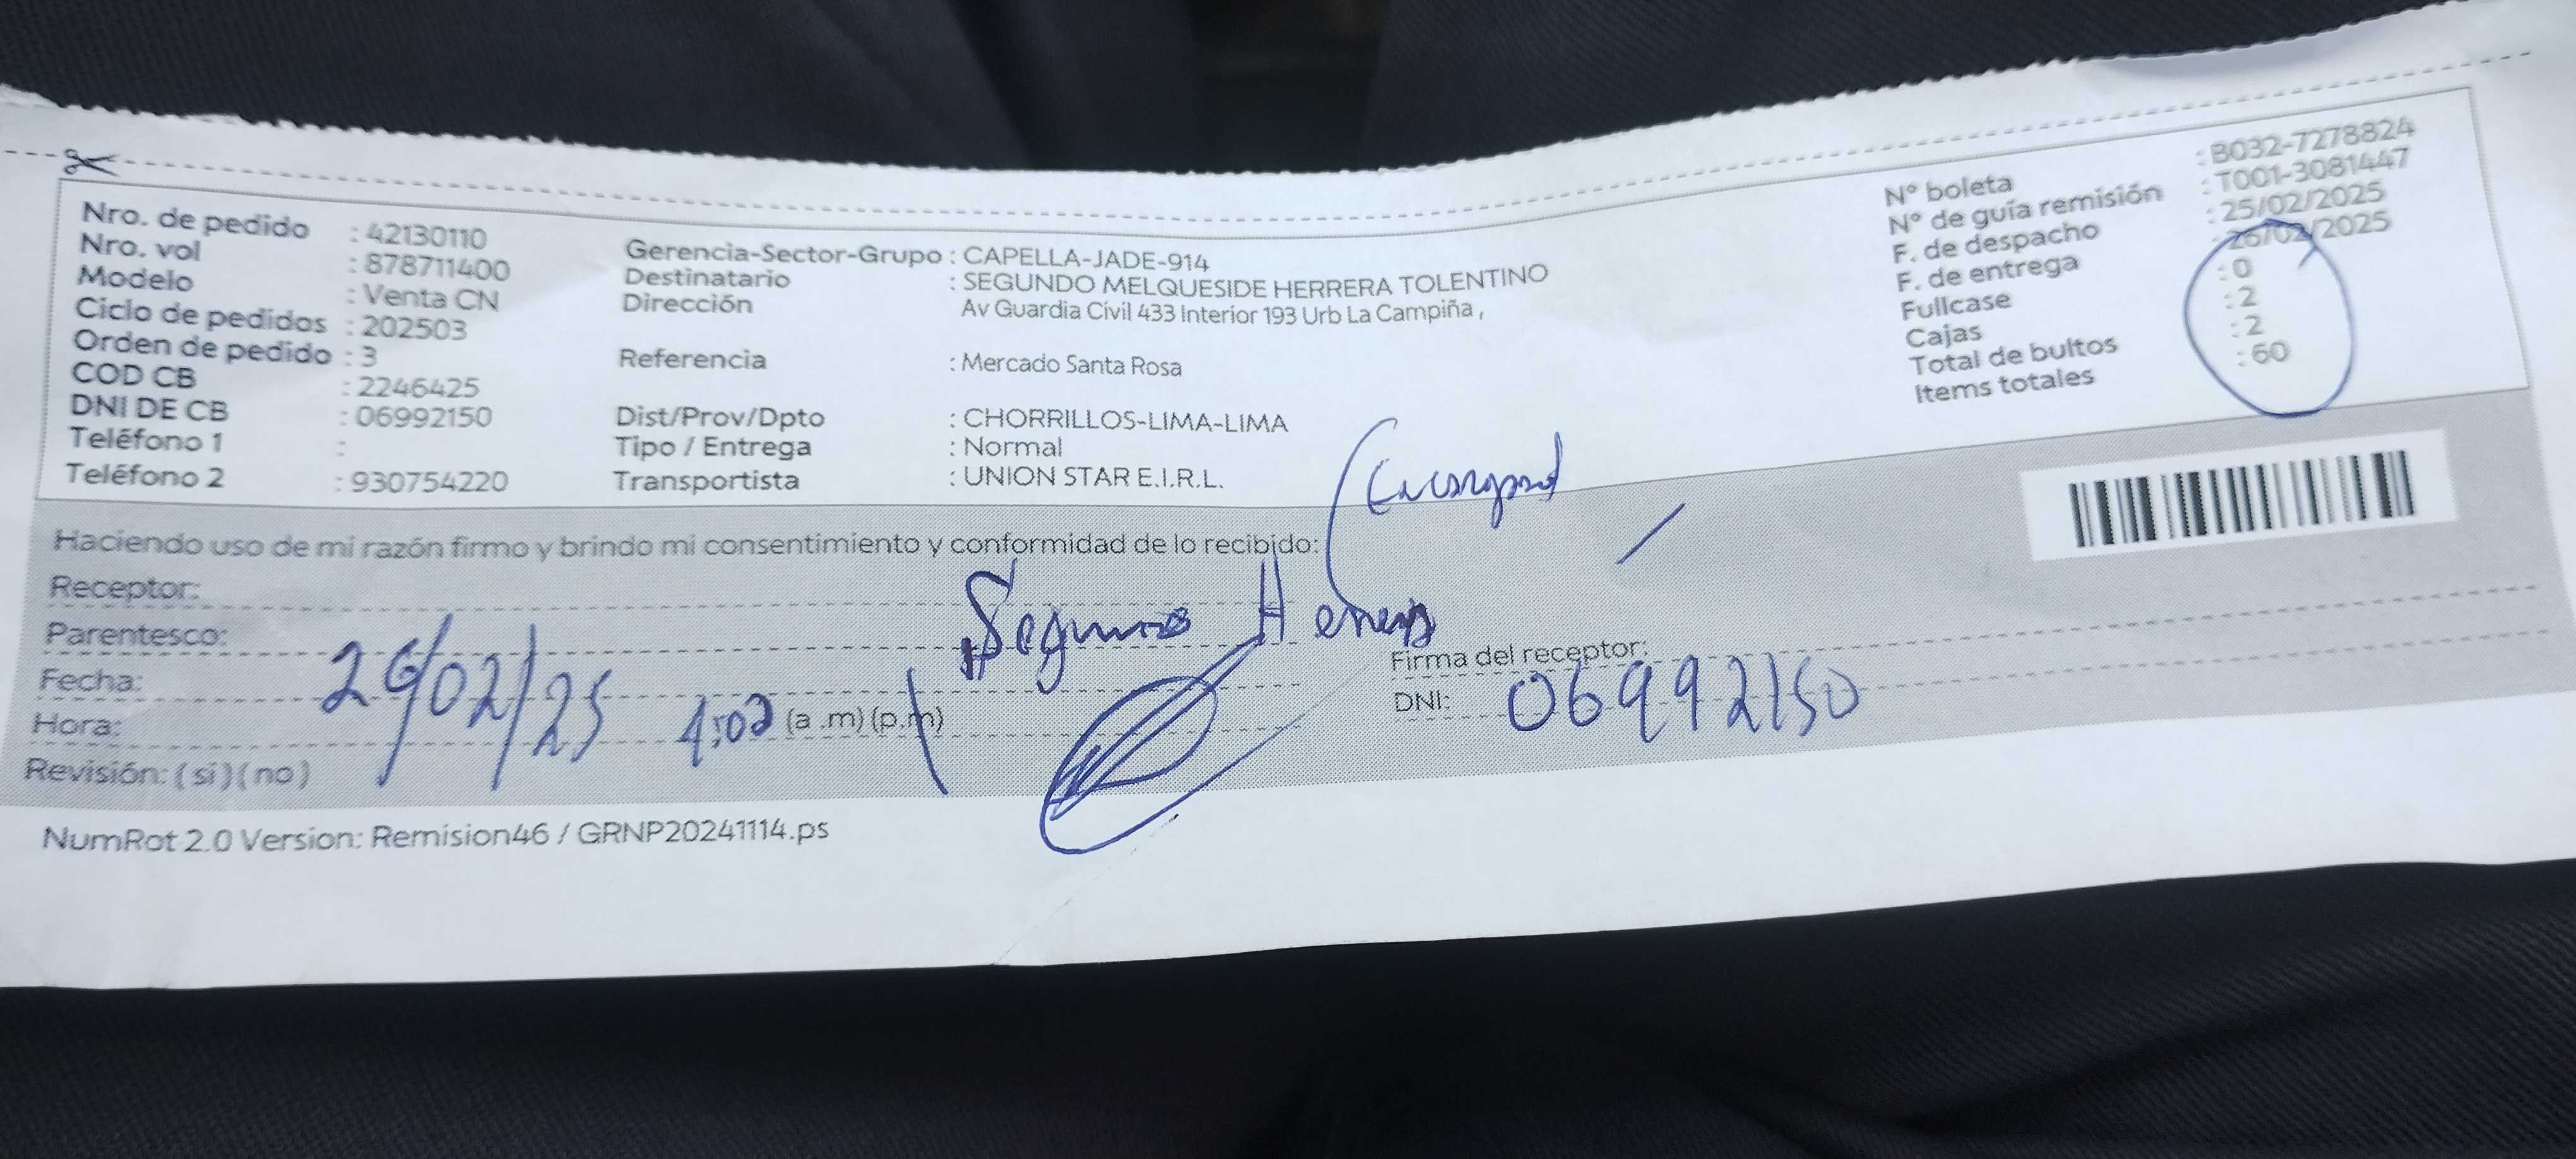 Nro. de pedido : 42130110
Nro. vol : 878711400
Modelo : Venta CN
Ciclo de pedidos : 202503
Orden de pedido : 3
COD CB : 2246425
DNI DE CB : 06992150
Teléfono 1 :
Teléfono 2 : 930754220
Gerencia-Sector-Grupo : CAPELLA-JADE-914
Destinatario : SEGUNDO MELQUESIDE HERRERA TOLENTINO
Dirección Av Guardia Civil 433 Interior 193 Urb La Campiña ,
Referencia : Mercado Santa Rosa
Dist/Prov/Dpto : CHORRILLOS-LIMA-LIMA
Tipo / Entrega : Normal
Transportista : UNION STAR E.I.R.L.
N° boleta : B032-7278824
N° de guía remisión : T001-3081447
F. de despacho : 25/02/2025
F. de entrega : 26/02/2025
Fullcase : 0
Cajas : 2
Total de bultos : 2
Items totales : 60
Haciendo uso de mi razón firmo y brindo mi consentimiento y conformidad de lo recibido:
Receptor:
Parentesco: Segundo Herrera
Fecha: 26/02/25
Hora: 4:02 (a .m) (p.m)
Revisión: ( si ) ( no )
Firma del receptor:
DNI: 06992150
NumRot 2.0 Version: Remision46 / GRNP20241114.ps